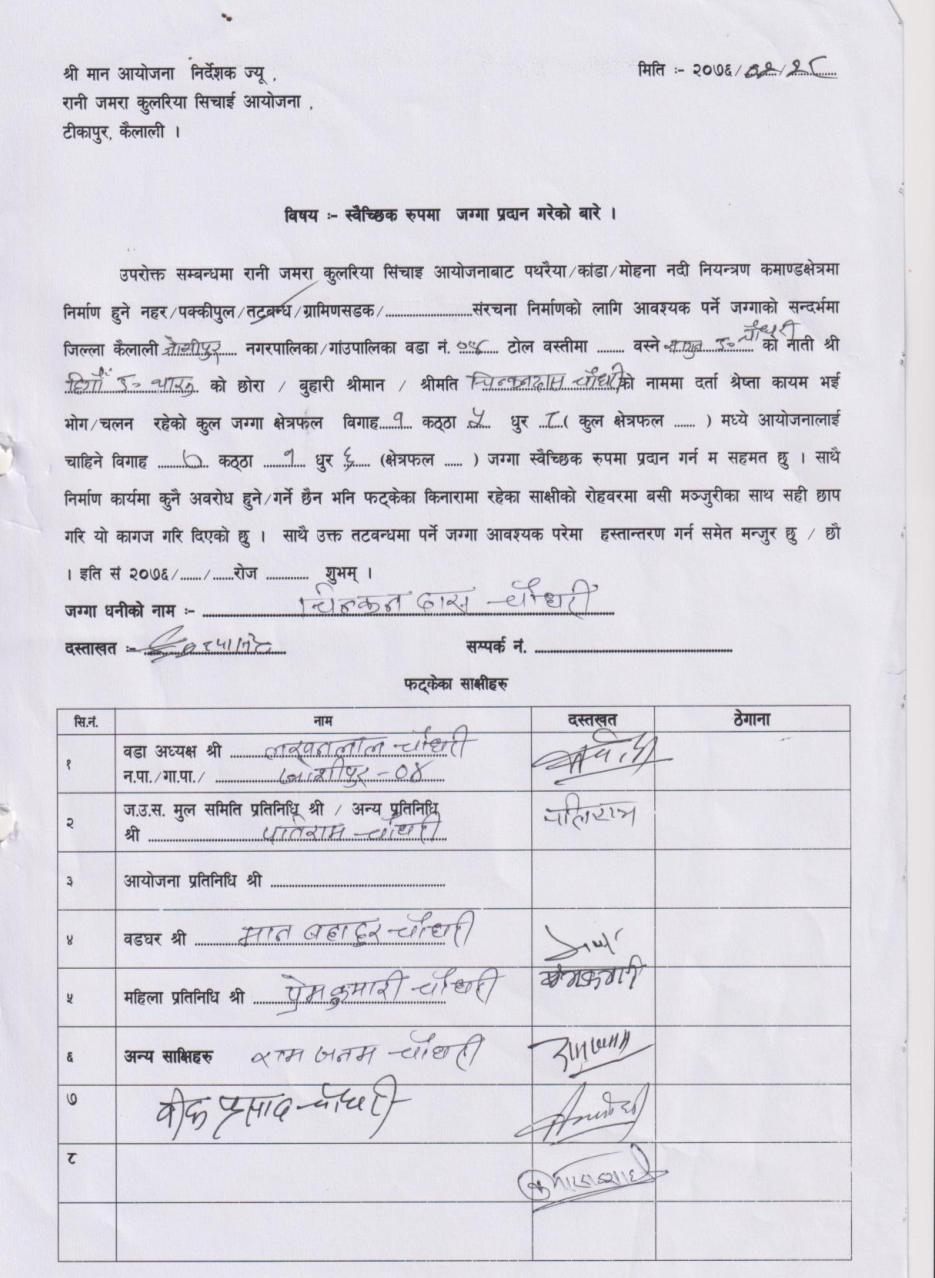 श्री मान आयोजना निर्देशक ज्यू ,
मिति :- २०७६/०२/२८
रानी जमरा कुलरिया सिचाई आयोजना ,
टीकापुर, कैलाली ।
विषय :- स्वैच्छिक रुपमा जग्गा प्रदान गरेको बारे ।
उपरोक्त सम्बन्धमा रानी जमरा कुलरिया सिंचाइ आयोजनाबाट पथरैया/कांडा/मोहना नदी नियन्त्रण कमाण्डक्षेत्रमा
निर्माण हुने नहर/पक्कीपुल/तटबन्ध/ग्रामिणसडक/........................संरचना निर्माणको लागि आवश्यक पर्ने जग्गाको सन्दर्भमा
जिल्ला कैलाली जोशीपुर नगरपालिका/गांउपालिका वडा नं. ०४ टोल वस्तीमा ........ वस्ने चौधरी को नाती श्री
थारु को छोरा / बुहारी श्रीमान / श्रीमति चिनकनदास चौधरी को नाममा दर्ता श्रेष्ता कायम भई
भोग/चलन रहेको कुल जग्गा क्षेत्रफल विगाह १ कठ्ठा ५ धुर ८ ( कुल क्षेत्रफल ...... ) मध्ये आयोजनालाई
चाहिने विगाह ० कठ्ठा १ धुर ६ (क्षेत्रफल ..... ) जग्गा स्वैच्छिक रुपमा प्रदान गर्न म सहमत छु । साथै
निर्माण कार्यमा कुनै अवरोध हुने/गर्ने छैन भनि फट्केका किनारामा रहेका साक्षीको रोहवरमा बसी मञ्जुरीका साथ सही छाप
गरि यो कागज गरि दिएको छु । साथै उक्त तटवन्धमा पर्ने जग्गा आवश्यक परेमा हस्तान्तरण गर्न समेत मन्जुर छु / छौ
। इति सं २०७६/....../......रोज ............ शुभम् ।
जग्गा धनीको नाम :- चिनकन दास चौधरी
दस्ताखत :- सम्पर्क नं. ................................................
फट्केका साक्षीहरु
सि.नं. नाम दस्तखत ठेगाना
१ वडा अध्यक्ष श्री लखनलाल चौधरी
न.पा./गा.पा./ जोशीपुर - ०४
२ ज.उ.स. मुल समिति प्रतिनिधि श्री / अन्य प्रतिनिधि
श्री पतिराम चौधरी पतिराम
३ आयोजना प्रतिनिधि श्री ..........................................
४ वडघर श्री मान बहादुर चौधरी
५ महिला प्रतिनिधि श्री प्रेमकुमारी चौधरी प्रेमकुमारी
६ अन्य साक्षिहरु राम जनम चौधरी रामजनम
७ प्रसाद चौधरी
८